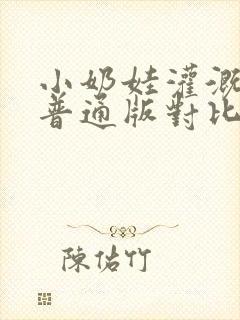 小奶娃灌溉
普通版對比
陳佑竹